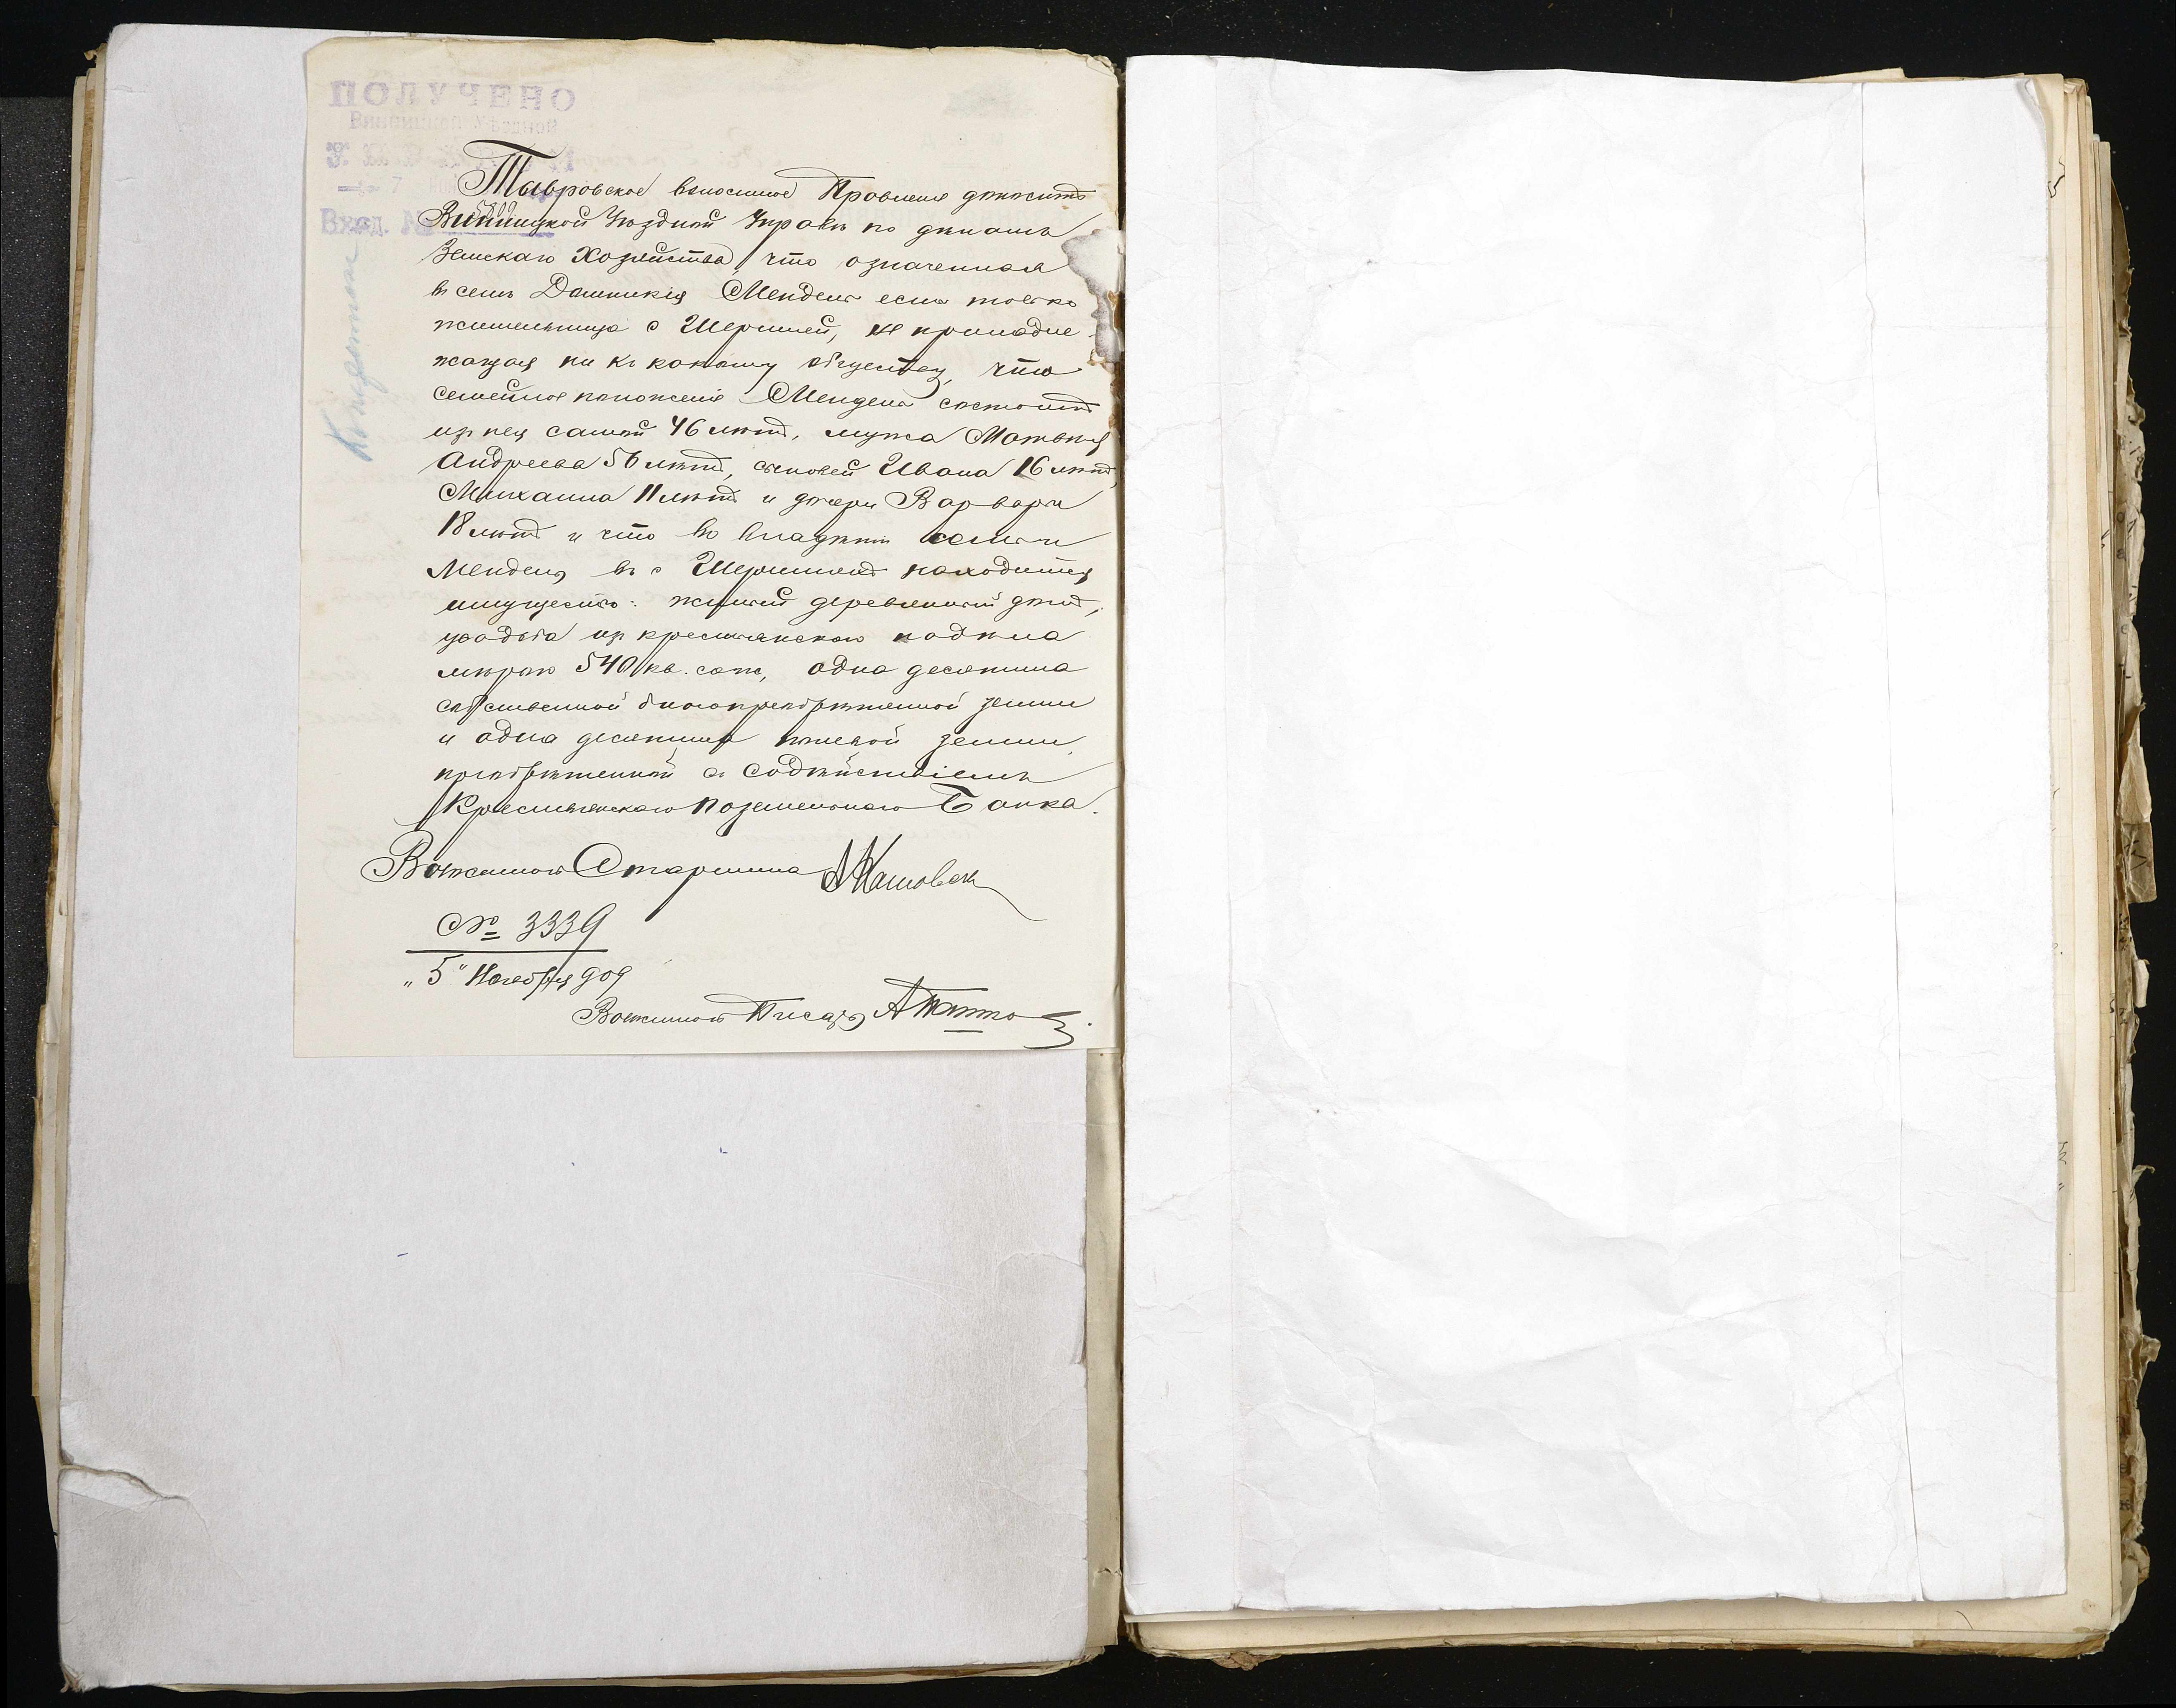 ПОЛУЧЕНО
Винницкой Уѣздной
7
Вход. №
Тывровское волостное Правленіе доноситъ
Винницкой Уѣздной Управѣ по дѣламъ
Земскаго Хозяйства, что означенная
въ семъ Мендель есть только
жительница с Шершней, не принадле-
жащая ни къ какому обществу, что
семейное положеніе Мендель состоитъ
изъ нея самой 46 лѣтъ, мужа Матвѣя
Андреева 56 лѣтъ, сыновей Ивана 16 лѣтъ,
Михаила 11 лѣтъ и дочери Варвары
18 лѣтъ и что во владѣніи семьи
Мендель въ с Шершняхъ находится
имущество: жилой деревянный домъ,
усадьба изъ крестьянскаго надѣла
мѣрою 540 кв. саж, одна десятина
собственной благопріобрѣтенной земли
и одна десятина полевой земли,
пріобрѣтенной съ содѣйствіемъ
Крестьянскаго Поземельнаго Банка.
Волостной Старшина
№ 3339
"5" Ноября 909
Волостной Писарь